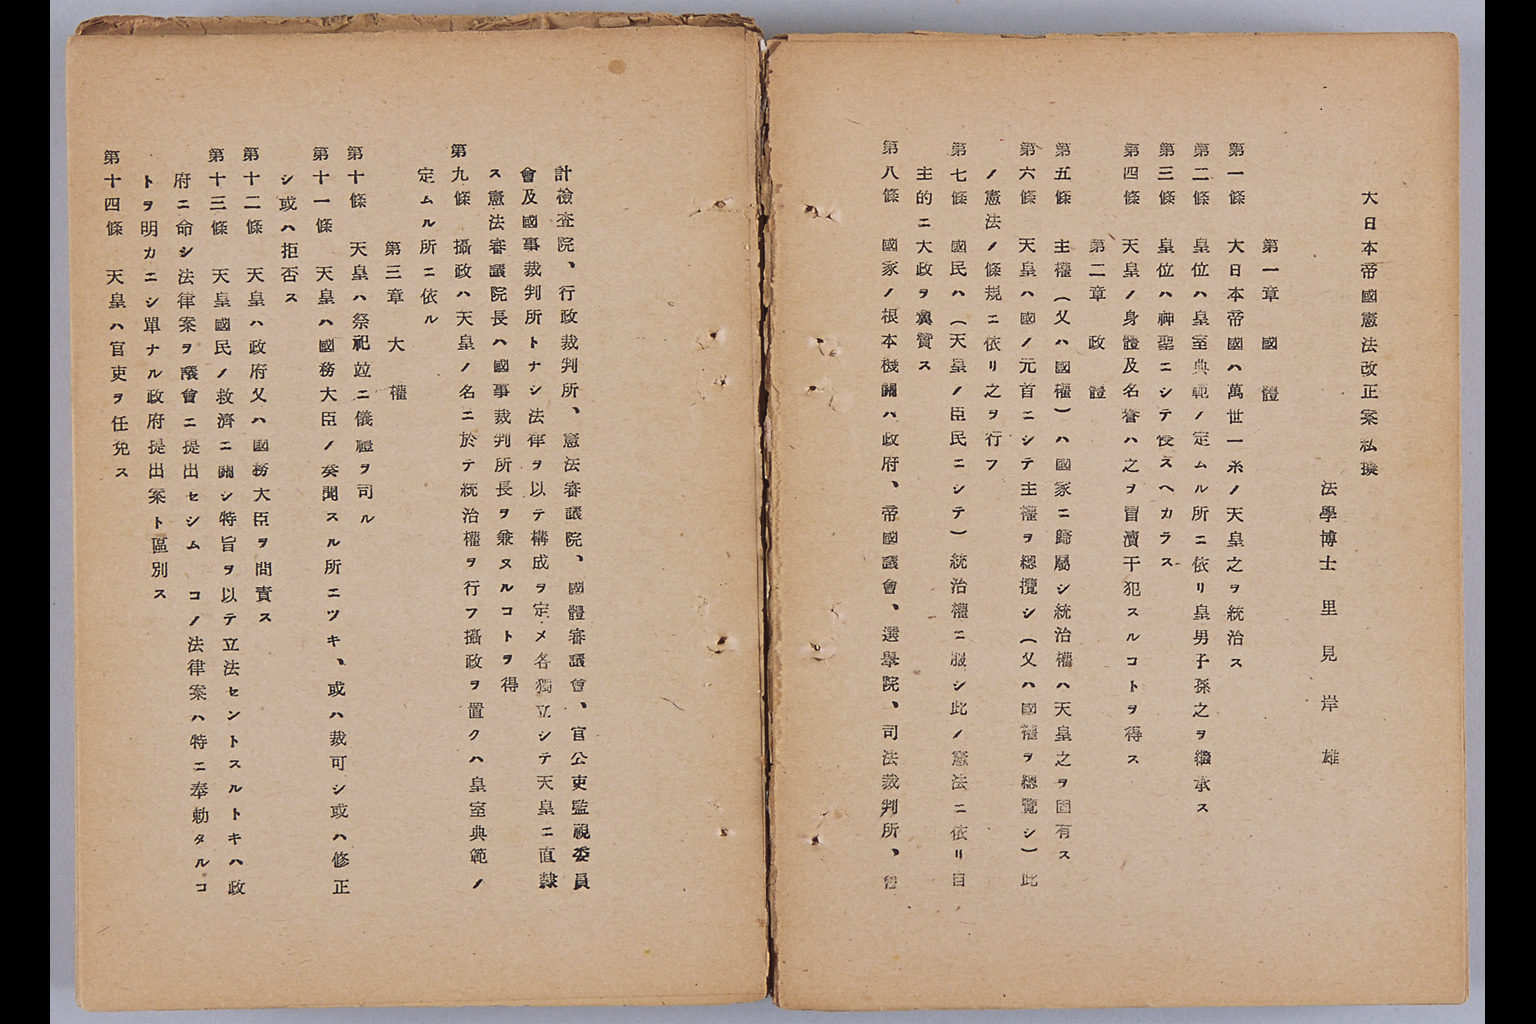 大日本帝國憲法改正案私擬
法學博士 里見岸雄
第一章 國體
第一條 大日本帝國ハ萬世一系ノ天皇之ヲ統治ス
第二條 皇位ハ皇室典範ノ定ムル所ニ依リ皇男子孫之ヲ繼承ス
第三條 皇位ハ神聖ニシテ侵スヘカラス
第四條 天皇ノ身體及名譽ハ之ヲ冒瀆干犯スルコトヲ得ス
第二章 政體
第五條 主權(又ハ國權)ハ國家ニ歸屬シ統治權ハ天皇之ヲ固有ス
第六條 天皇ハ國ノ元首ニシテ主權ヲ總攬シ(又ハ國權ヲ總覽シ)此
ノ憲法ノ條規ニ依リ之ヲ行フ
第七條 國民ハ(天皇ノ臣民ニシテ)統治權ニ服シ此ノ憲法ニ依リ自
主的ニ大政ヲ翼贊ス
第八條 國家ノ根本機關ハ政府、帝國議會、選擧院、司法裁判所、會
計檢査院、行政裁判所、憲法審議院、國體審議會、官公吏監視委員
會及國事裁判所トナシ法律ヲ以テ構成ヲ定メ各獨立シテ天皇ニ直隸
ス憲法審議院長ハ國事裁判所長ヲ兼ヌルコトヲ得
第九條 攝政ハ天皇ノ名ニ於テ統治權ヲ行フ攝政ヲ置クハ皇室典範ノ
定ムル所ニ依ル
第三章 大權
第十條 天皇ハ祭祀竝ニ儀禮ヲ司ル
第十一條 天皇ハ國務大臣ノ奏聞スル所ニツキ、或ハ裁可シ或ハ修正
シ或ハ拒否ス
第十二條 天皇ハ政府又ハ國務大臣ヲ問責ス
第十三條 天皇國民ノ救濟ニ關シ特旨ヲ以テ立法セントスルトキハ政
府ニ命シ法律案ヲ議會ニ提出セシム コノ法律案ハ特ニ奉勅タルコ
トヲ明カニシ單ナル政府提出案ト區別ス
第十四條 天皇ハ官吏ヲ任免ス